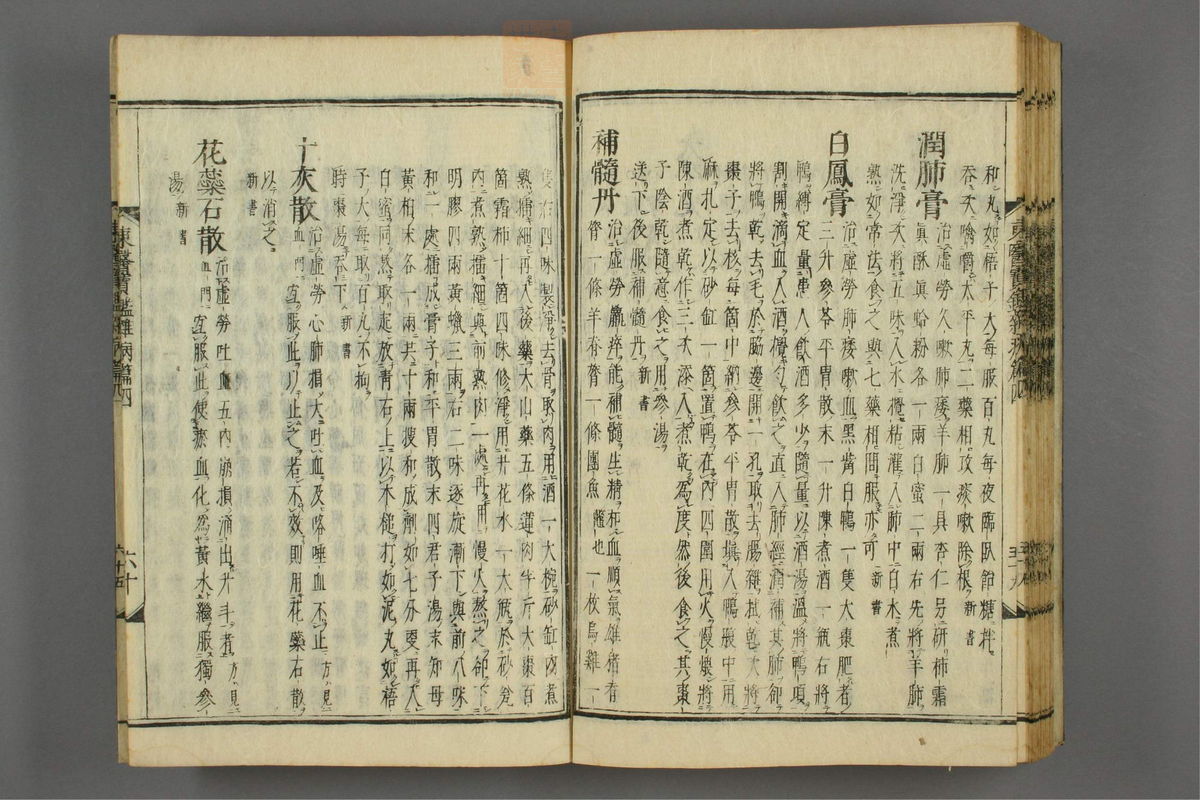 和丸如梧子大每服百丸每夜臨臥飴糖拌
吞次噙嚼太平丸二藥相攻痰嗽除根 新書
潤肺膏 治虛勞久嗽肺痿羊肺一具杏仁另研柿霜
眞酥眞蛤粉各一兩白蜜二兩右先將羊肺
洗淨次將五味入水攪粘灌入肺中白水煮
熟如常法食之與七藥相間服亦可 新書
白鳳膏 治虛勞肺痿嗽血黑觜白鴨一隻大棗肥者
二升參苓平胃散末一升陳煮酒一瓶右將
鴨縛定量患人飮酒多少隨量以酒湯溫將鴨項
割開滴血入酒攪勻飮之直入肺經潤補其肺却
將鴨乾去毛於脇邊開一孔取去腸雜拭乾次將
棗子去核每箇中納參苓平胃散塡入鴨腹中用
麻扎定以砂缸一箇置鴨在內四圍用火慢煨將
陳酒煮乾作三次添入煮乾爲度然後食之其棗
子陰乾隨意食之用參湯
送下後服補髓丹 新書
補髓丹 治虛勞羸瘁能補髓生精和血順氣雄猪脊
膂一條羊脊膂一條團魚 鱉也 一枚烏雞一
隻右四味製淨去骨取肉用酒一大椀砂缸內煮
熟擂細再入後藥大山藥五條蓮肉半斤大棗百
箇霜柿十箇四味修淨用井花水一大甁於砂瓮
內煮熟擂細與前熟肉一處再用慢火熬之却下
明膠四兩黃蠟三兩右二味逐旋漸下與前八味
和一處擂成膏子和平胃散末四君子湯末知母
黃柏末各一兩共十兩搜和成劑如乾硬再入
白蜜同熬取起放靑石上以木槌打如泥丸如梧
子大每取百丸不拘
時棗湯呑下 新書
十灰散 治虛勞心肺損大吐血及咯唾血不止 方見
血門 宜服此以止之若不效則用花藥石散
以消之
新書
花蘂石散 治虛勞吐血五內崩損涌出升斗者 方見
血門 宜服此使瘀血化爲黃水繼服獨參
湯 新書
東醫寶鑑雜病篇四